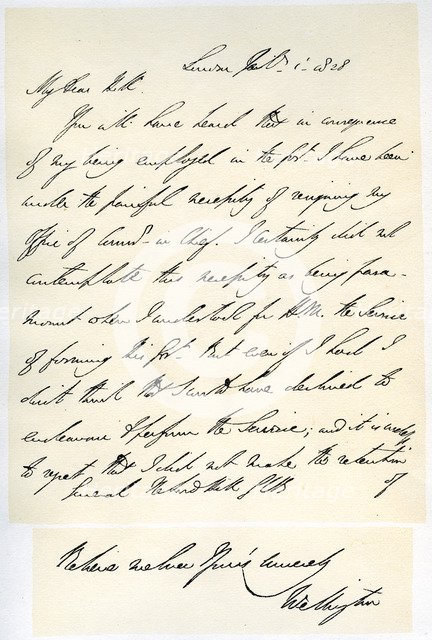 London Feb. 1. 1828
My Dear Hill.
You will have heard that in consequence
of my being employed in the Govt. I have been
under the painful necessity of resigning my
Office of Commr. in Chief. I certainly did not
contemplate this necessity as being para-
mount when I undertook for H M. the Service
of forming this Govt. But even if I had I
don't think that I could have declined to
endeavour to perform the Service; and it is useless
to regret that I did not make the retention of
General Lord Hill GCB
Believe me Ever Yours sincerely
Wellington